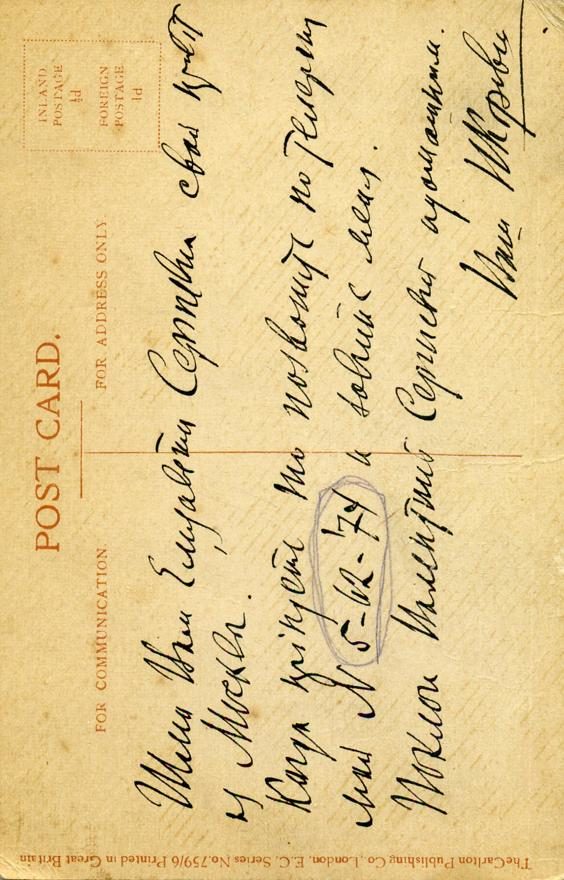 POST CARD.
FOR COMMUNICATION
FOR ADDRESS ONLY.
INLAND
POSTAGE
½d
FOREIGN
POSTAGE
1d
Шлю Вам Елизавета Сергеевна свой привет
из Москвы.
Когда приедете то позвоните по телефону
мой № 5-42-74 и зовите меня.
Поклон Валентине Сергеевне
Ваш
The Carlton Publishing Co, London, E.C, Series No. 759/6 Printed in Great Britain